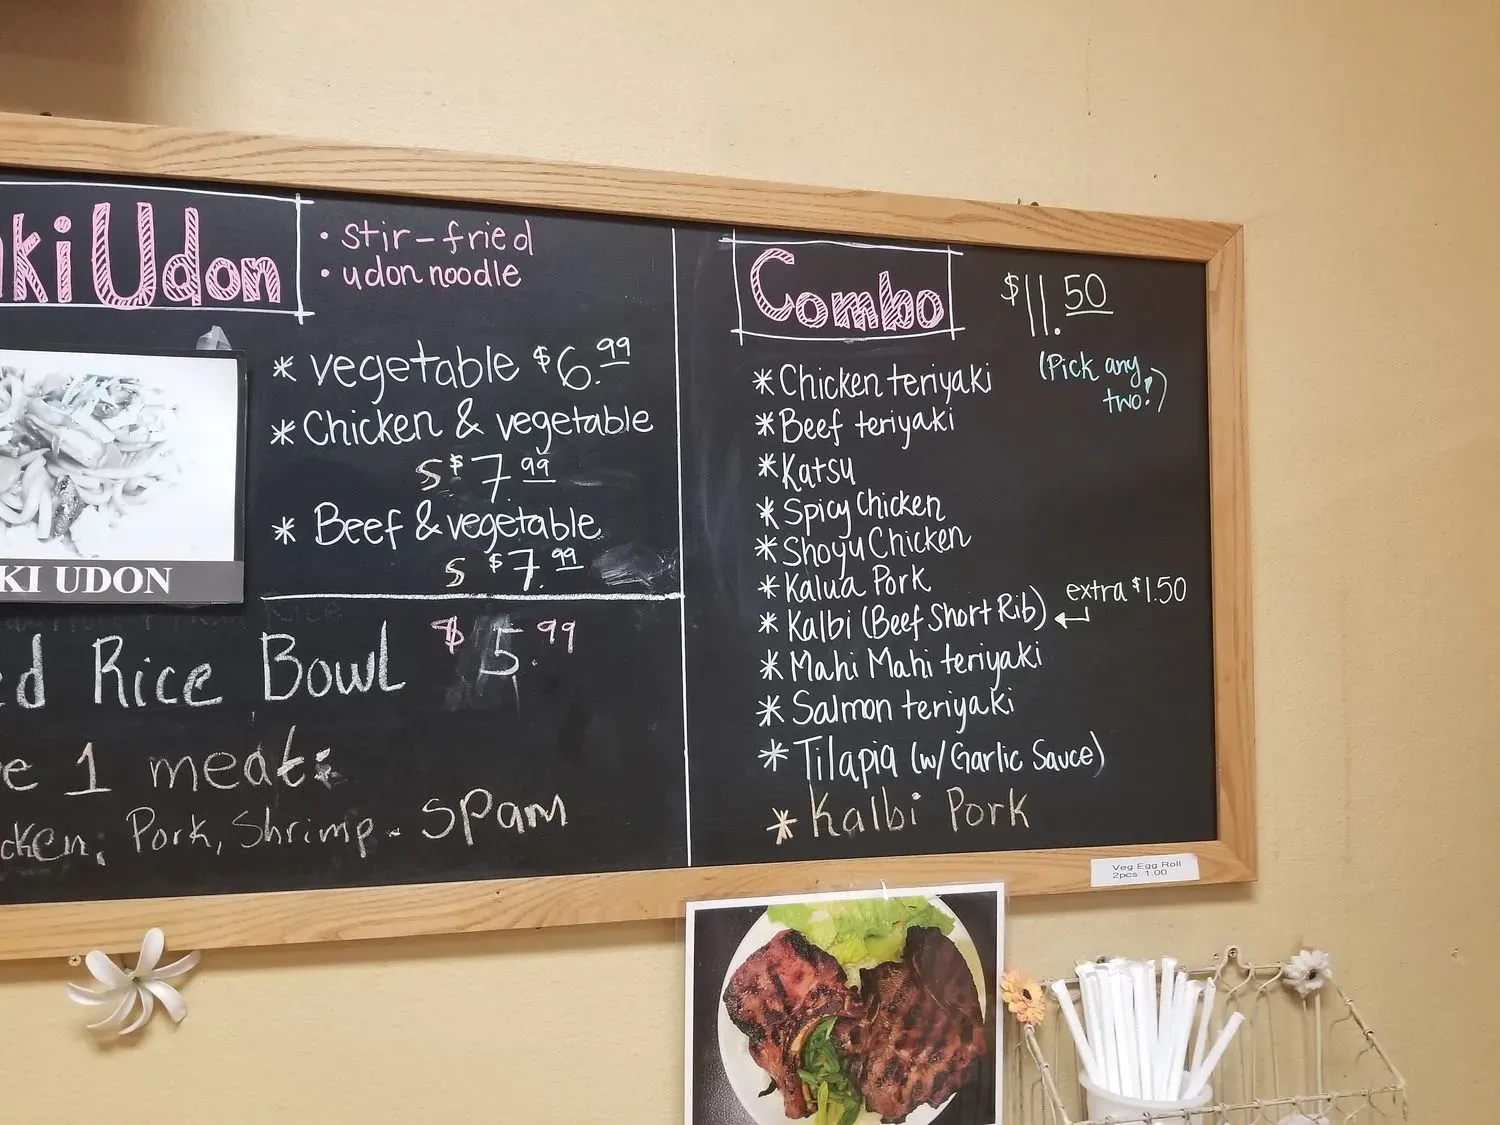 ki Udon
• stir-fried
• udon noodle
* vegetable $6.99
* Chicken & vegetable
S $7.99
* Beef & vegetable
S $7.99
KI UDON
ed Rice Bowl $5.99
e 1 meat:
cken, Pork, Shrimp. SPAM
Combo $11.50
(Pick any
two!)
* Chicken teriyaki
* Beef teriyaki
* Katsu
* Spicy Chicken
* Shoyu Chicken
* Kalua Pork
* Kalbi (Beef Short Rib) extra $1.50
* Mahi Mahi teriyaki
* Salmon teriyaki
* Tilapia (w/Garlic Sauce)
* Kalbi Pork
Veg Egg Roll
2pcs 1.00